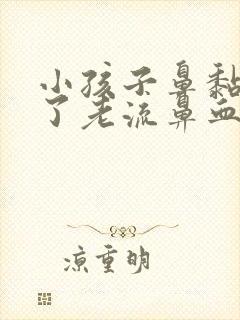 小孩子鼻黏
了老流鼻血
凉重明